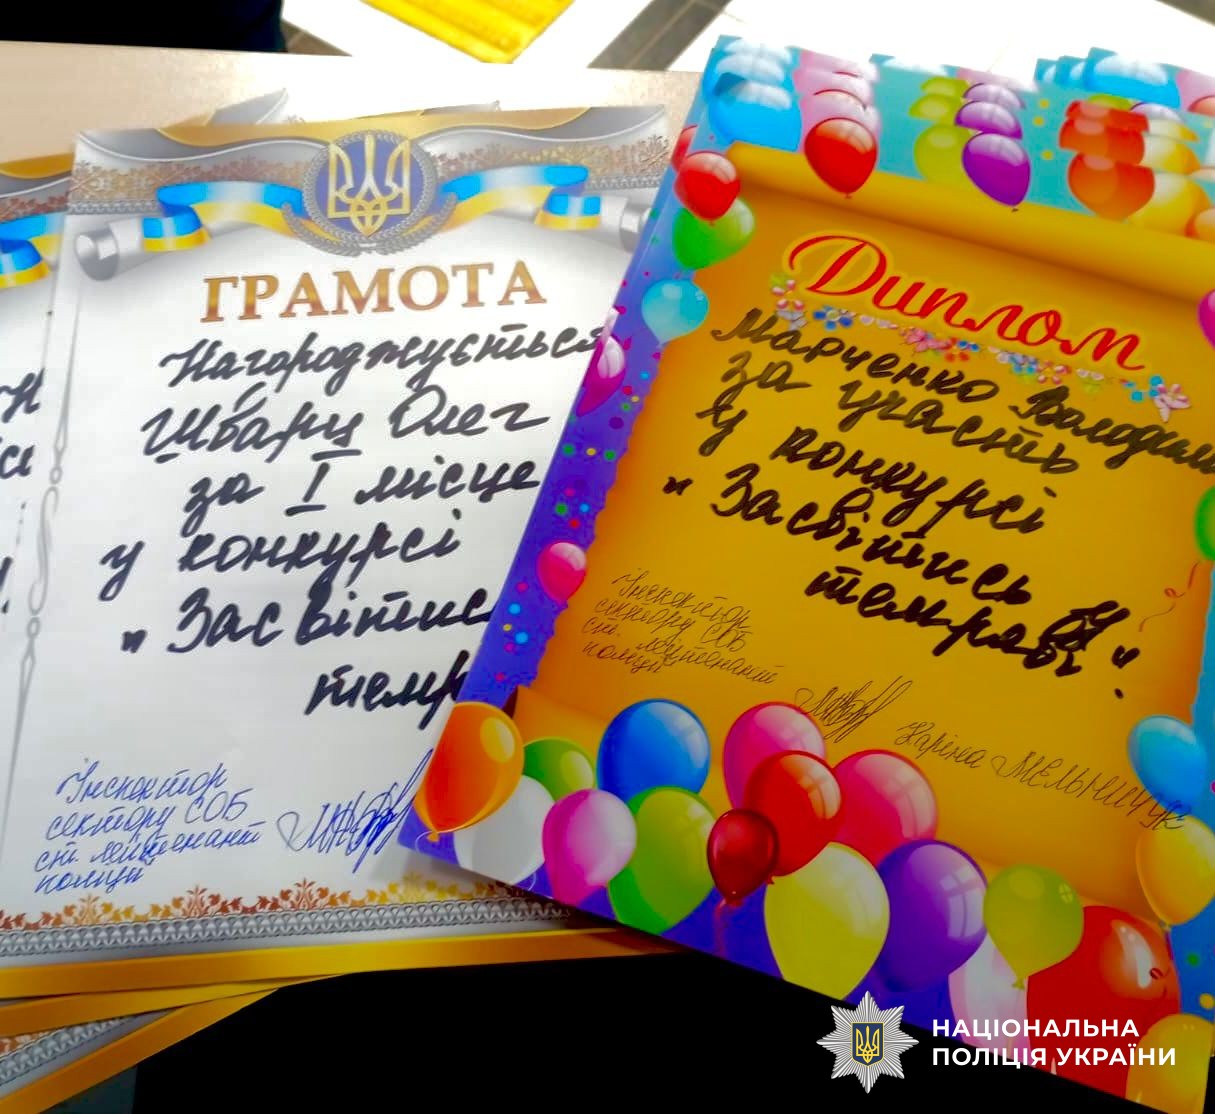 ГРАМОТА
Нагороджується
Шварц Олег
за I місце
у конкурсі
"Засвітись
темр
Інспектор
сектору СОБ
ст. лейтенант
поліції
Диплом
Марченко Володим
за участь
у конкурсі
"Засвітись у
темряві".
Інспектор
сектору СОБ
ст. лейтенант
поліції
Каріна Мельничук
НАЦІОНАЛЬНА
ПОЛІЦІЯ УКРАЇНИ